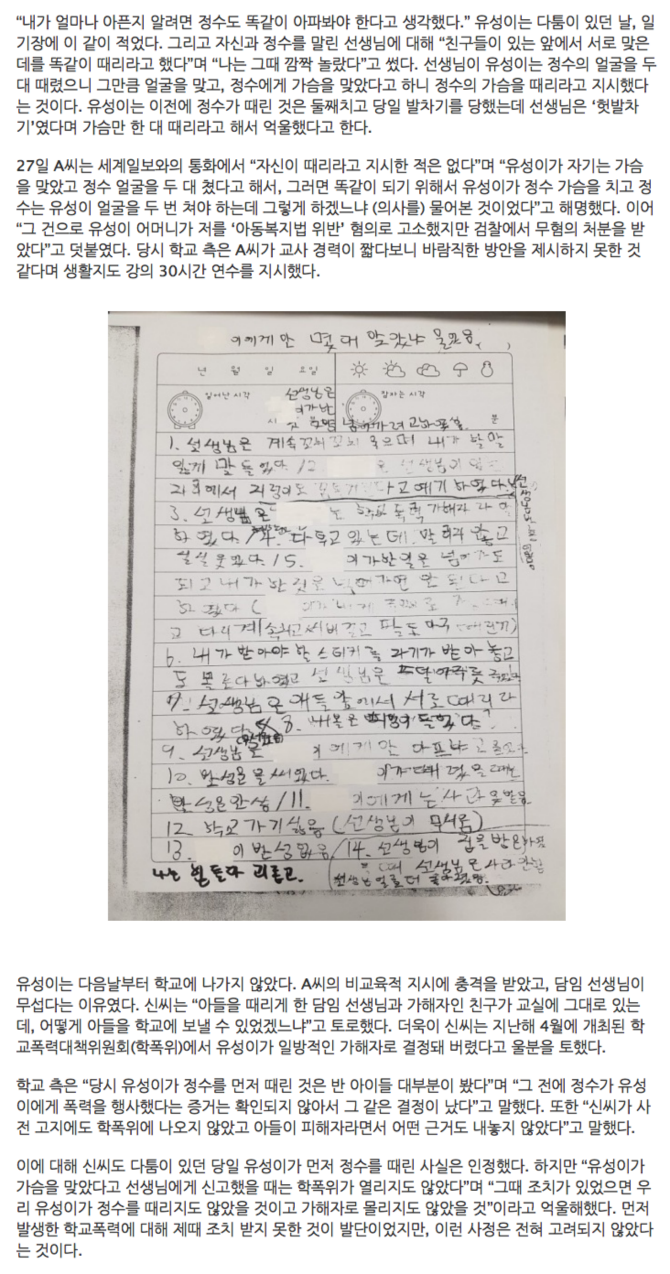 “내가 얼마나 아픈지 알려면 정수도 똑같이 아파봐야 한다고 생각했다.” 유성이는 다툼이 있던 날, 일
기장에 이 같이 적었다. 그리고 자신과 정수를 말린 선생님에 대해 “친구들이 있는 앞에서 서로 맞은
데를 똑같이 때리라고 했다”며 “나는 그때 깜짝 놀랐다”고 썼다. 선생님이 유성이는 정수의 얼굴을 두
대 때렸으니 그만큼 얼굴을 맞고, 정수에게 가슴을 맞았다고 하니 정수의 가슴을 때리라고 지시했다
는 것이다. 유성이는 이전에 정수가 때린 것은 둘째치고 당일 발차기를 당했는데 선생님은 ‘헛발차
기’였다며 가슴만 한 대 때리라고 해서 억울했다고 한다.
27일 A씨는 세계일보와의 통화에서 “자신이 때리라고 지시한 적은 없다”며 “유성이가 자기는 가슴
을 맞았고 정수 얼굴을 두 대 쳤다고 해서, 그러면 똑같이 되기 위해서 유성이가 정수 가슴을 치고 정
수는 유성이 얼굴을 두 번 쳐야 하는데 그렇게 하겠느냐 (의사를) 물어본 것이었다”고 해명했다. 이어
“그 건으로 유성이 어머니가 저를 ‘아동복지법 위반’ 혐의로 고소했지만 검찰에서 무혐의 처분을 받
았다”고 덧붙였다. 당시 학교 측은 A씨가 교사 경력이 짧다보니 바람직한 방안을 제시하지 못한 것
같다며 생활지도 강의 30시간 연수를 지시했다.
이에게만 몇 대 맞았냐 물었음
년 월 일 요일
일어난 시각 선생님은 잠자는 시각
시 분
1. 선생님은 계속 꼬치꼬치 물으며 내가 할 말
없게 만들었다 /2 은 선생님이
고 얘기 하였다
3. 선생님은 는 학교폭력 가해자라
하였다 /4. 다투고 있는데
실실 웃었다. /5. 이가 한 일은 넘어가도
되고 내가 한 것은 넘어가면 안 된다고
하였다 (
고 다리 계속
6. 내가 받아야 할 스티커를 자기가 받아 놓고
도 모른다 하였고 선생님은
7. 선생님은 애들 앞에서 서로 때리라
하였다 8.
9. 선생님은 이에게만
10. 반성문을 써 왔다.
반성은 안 함 /11. 이에게는 사과 못 받음
12 학교 가기 싫음 (선생님이 무서움)
13. 이 반성 없음 /14. 선생님이
선생님은 사과 안 함
나는 힘들다 괴롭고.
유성이는 다음날부터 학교에 나가지 않았다. A씨의 비교육적 지시에 충격을 받았고, 담임 선생님이
무섭다는 이유였다. 신씨는 “아들을 때리게 한 담임 선생님과 가해자인 친구가 교실에 그대로 있는
데, 어떻게 아들을 학교에 보낼 수 있었겠느냐”고 토로했다. 더욱이 신씨는 지난해 4월에 개최된 학
교폭력대책위원회(학폭위)에서 유성이가 일방적인 가해자로 결정돼 버렸다고 울분을 토했다.
학교 측은 “당시 유성이가 정수를 먼저 때린 것은 반 아이들 대부분이 봤다”며 “그 전에 정수가 유성
이에게 폭력을 행사했다는 증거는 확인되지 않아서 그 같은 결정이 났다”고 말했다. 또한 “신씨가 사
전 고지에도 학폭위에 나오지 않았고 아들이 피해자라면서 어떤 근거도 내놓지 않았다”고 말했다.
이에 대해 신씨도 다툼이 있던 당일 유성이가 먼저 정수를 때린 사실은 인정했다. 하지만 “유성이가
가슴을 맞았다고 선생님에게 신고했을 때는 학폭위가 열리지도 않았다”며 “그때 조치가 있었으면 우
리 유성이가 정수를 때리지도 않았을 것이고 가해자로 몰리지도 않았을 것”이라고 억울해했다. 먼저
발생한 학교폭력에 대해 제때 조치 받지 못한 것이 발단이었지만, 이런 사정은 전혀 고려되지 않았다
는 것이다.